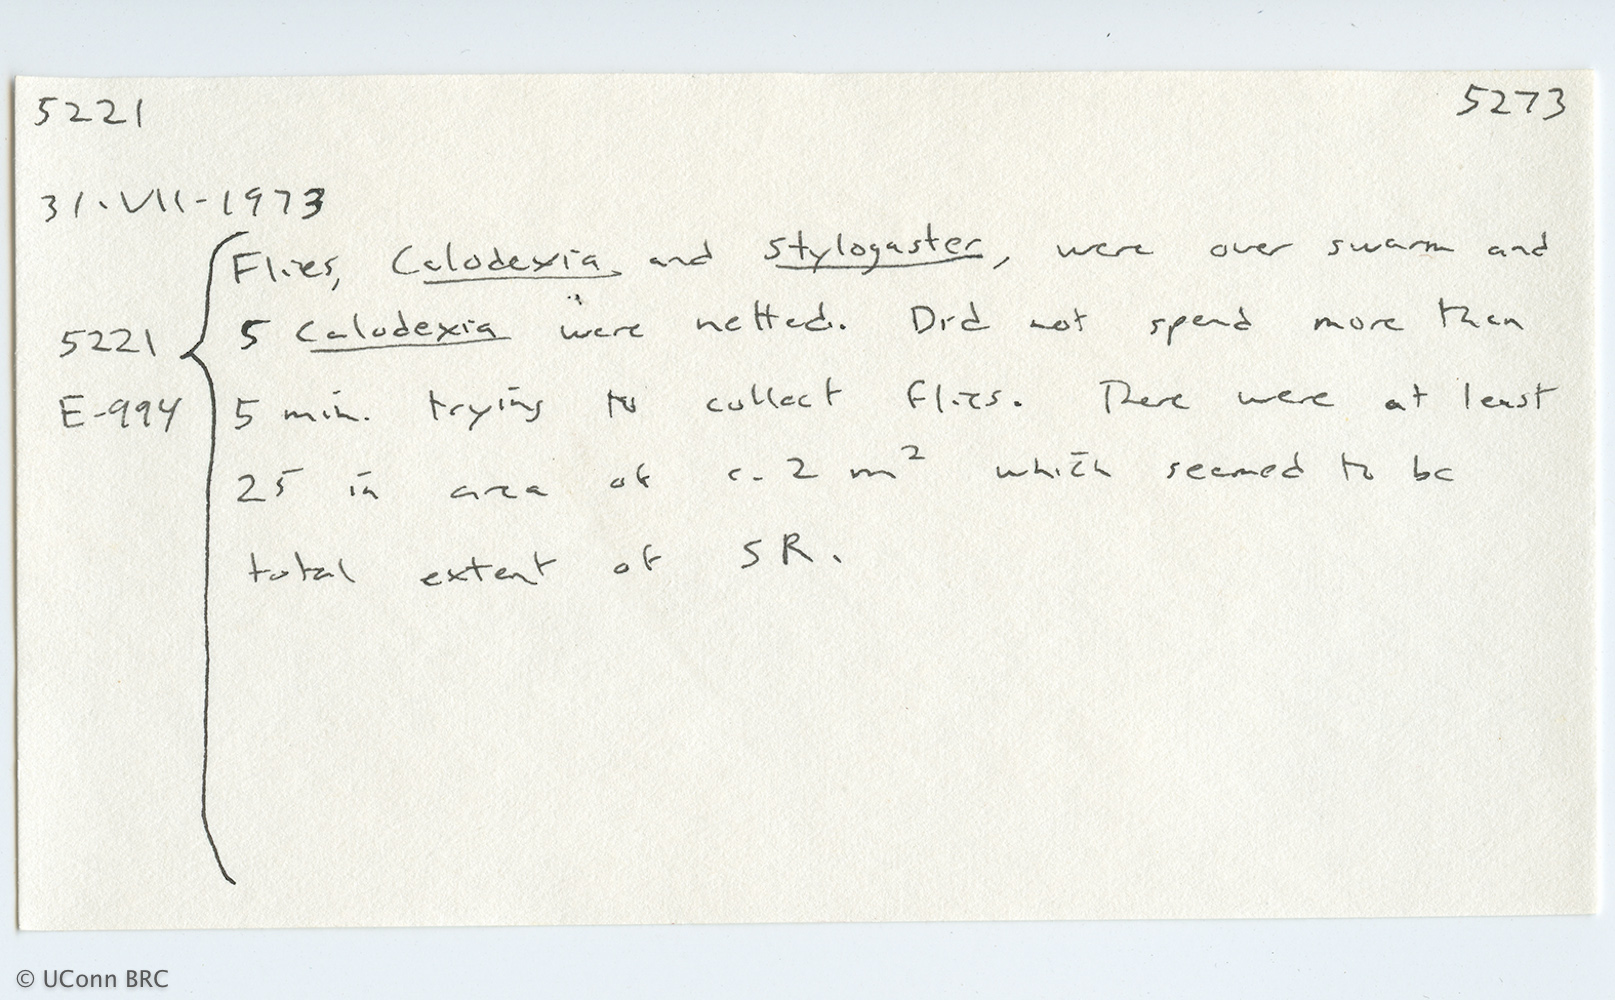 5221 5273
31·VII-1973
Flies, Calodexia and Stylogaster, were over swarm and
5221 5 Calodexia were netted. Did not spend more than
E-994 5 min. trying to collect flies. There were at least
25 in area of c. 2 m² which seemed to be
total extent of SR.
© UConn BRC